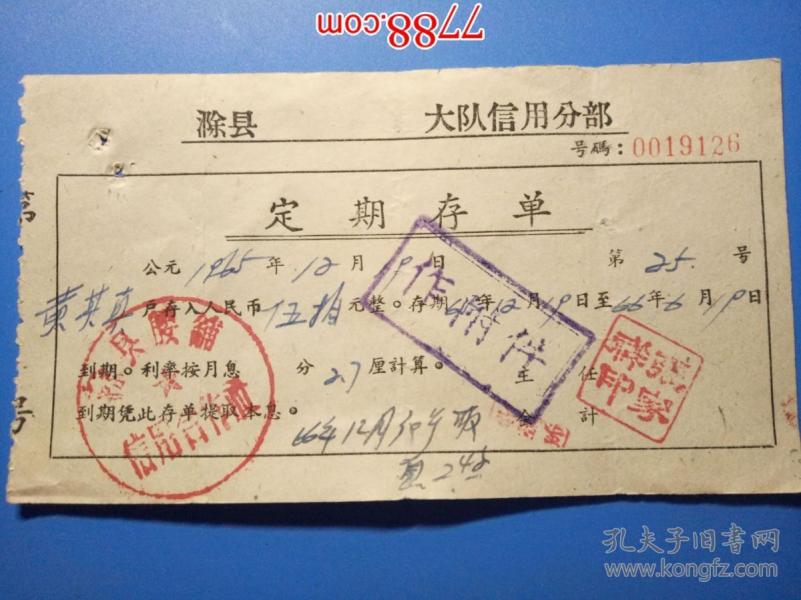 7788.com
滁县 大队信用分部
号碼：0019126
定期存单
公元1965年12月19日 第25号
黄其真 戶存入人民币伍拾元整。存期65年12月19日至66年6月19日
到期。利率按月息 分2.7厘計算。 主任
到期凭此存单提取本息。 会計
作附件
滁县腰舖
信用合作社
66年12月30号取
第 号
孔夫子旧书网
www.kongfz.com